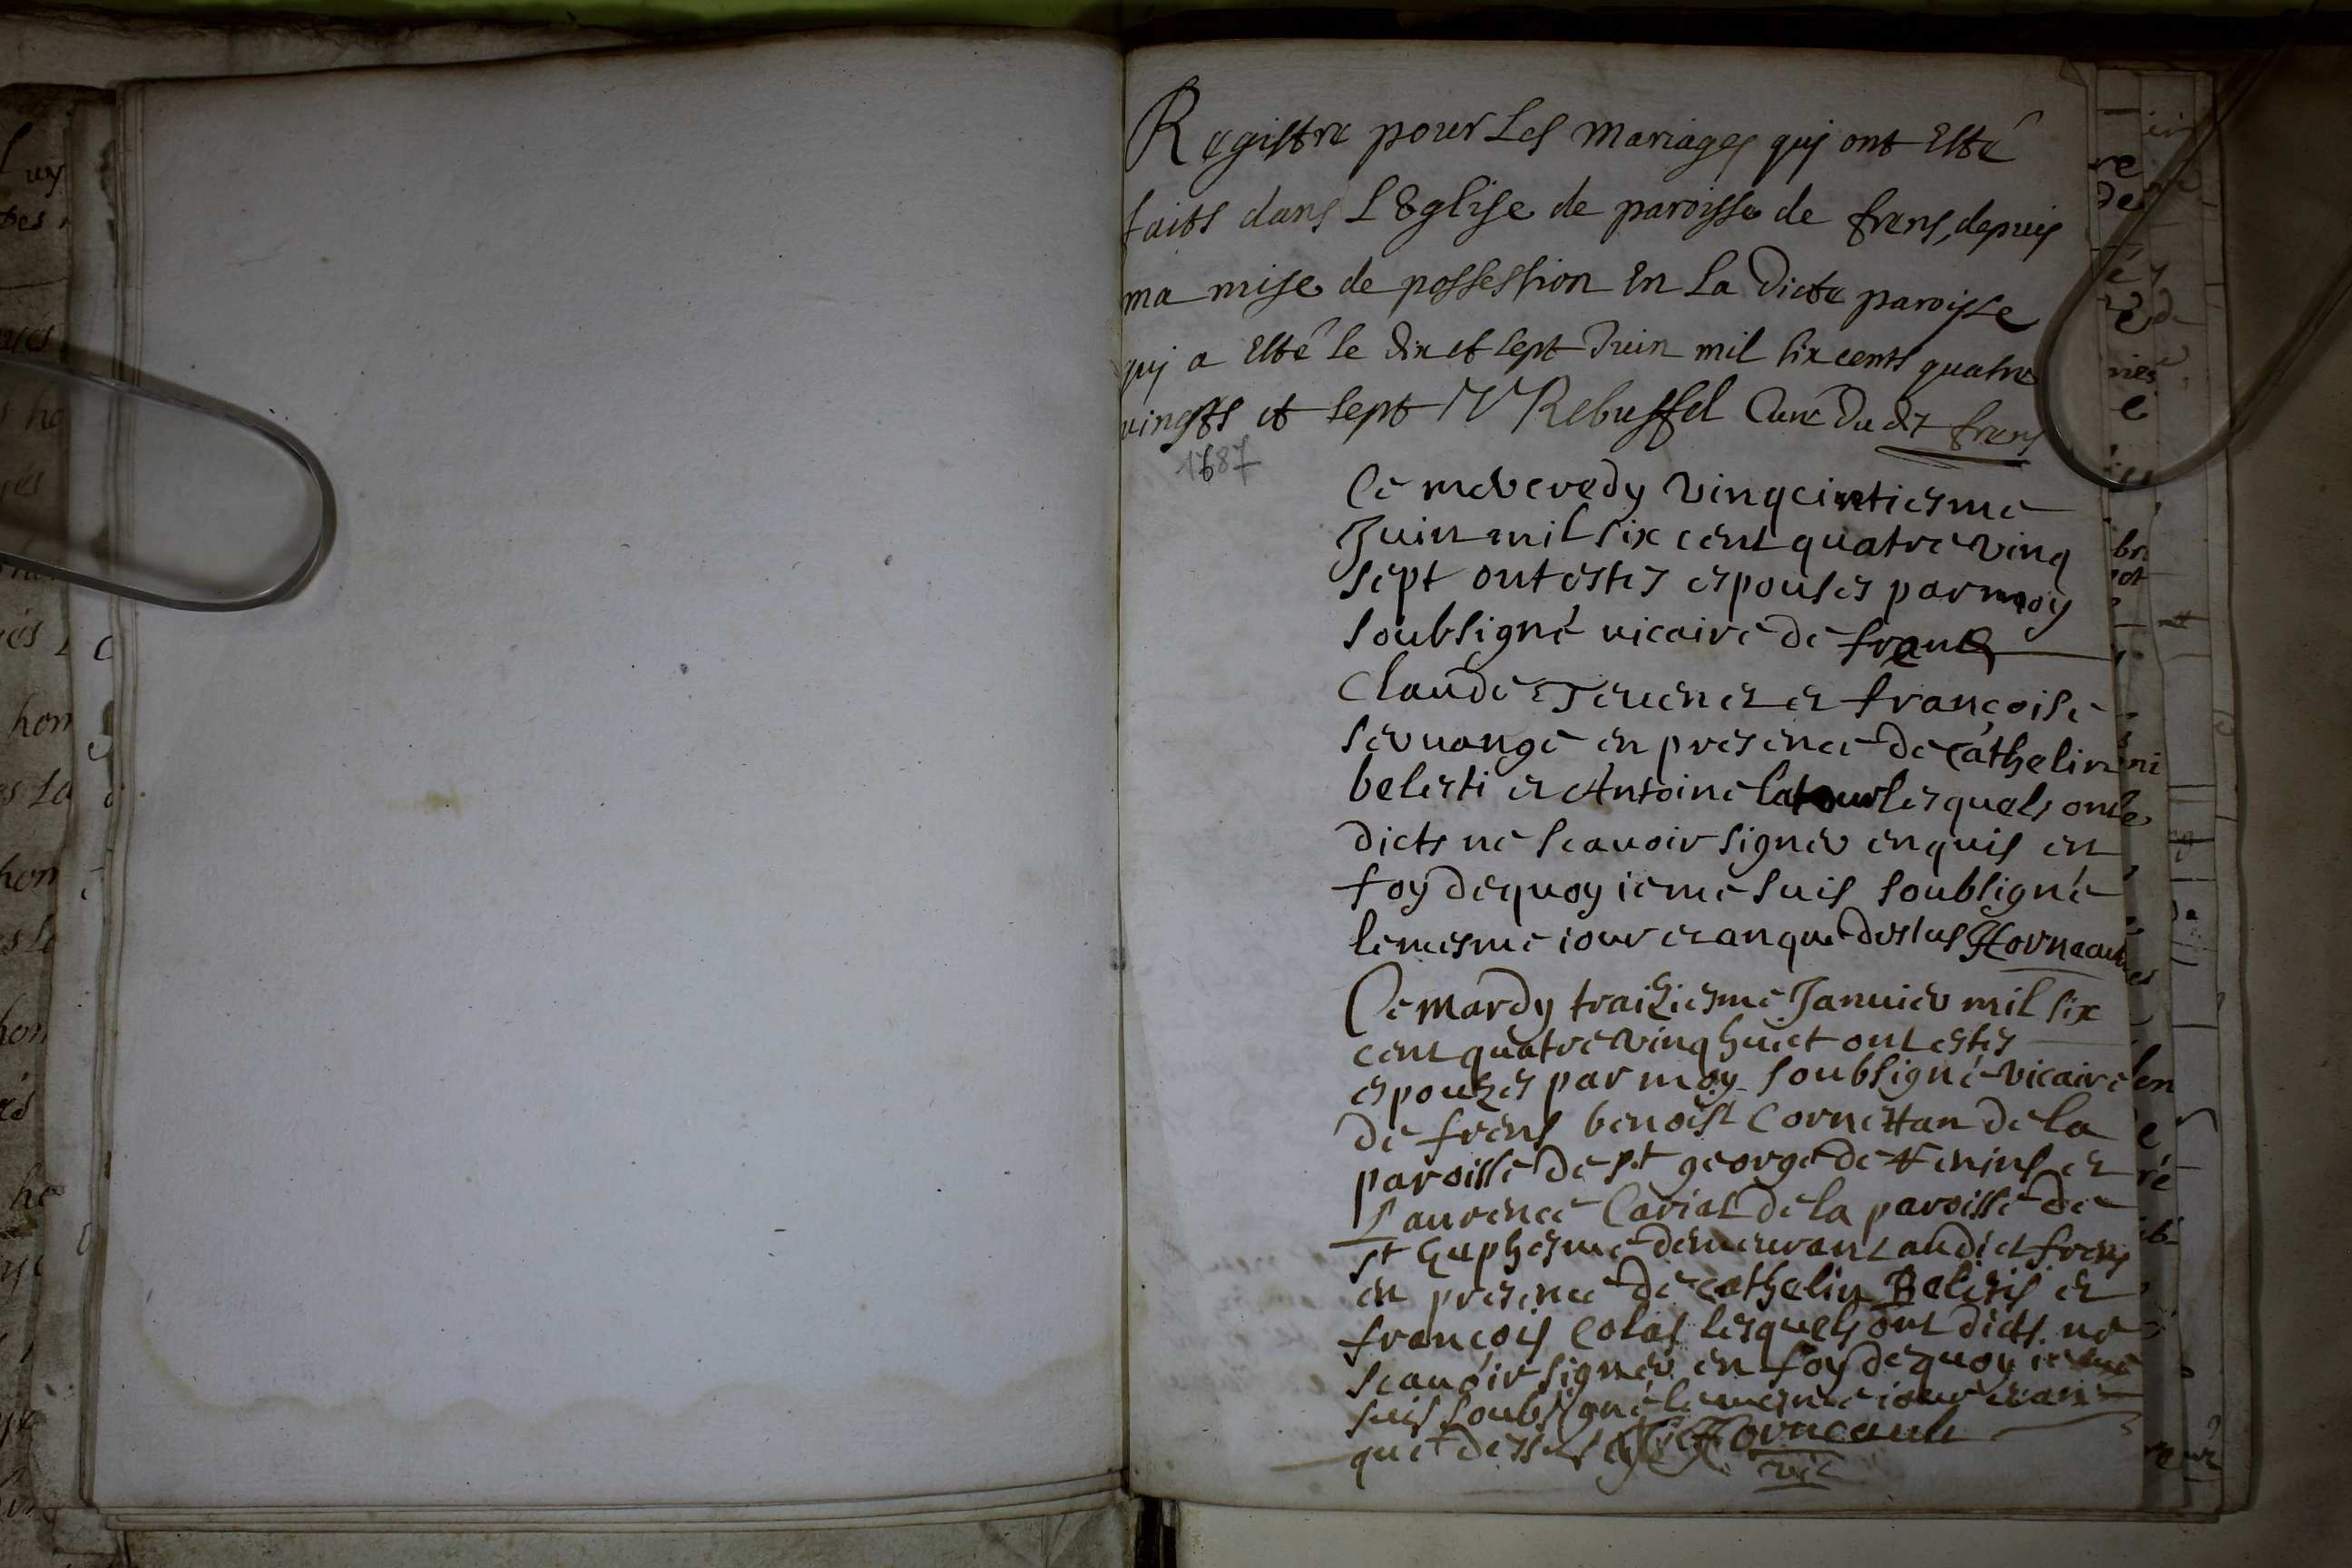 Registre pour Les Mariages quj ont Esté
faits dans L'Eglise de paroisse de frens, depuis
ma mise de possession En La Dicte paroisse
quj a Esté le dix et sept Juin mil six cents quatre
vingts et sept Rebuffel Curé du dit frens
1687
Ce mercredy vingcintiesme
Juin mil six cent quatre ving
sept ont estes espouses par moy
soubsigné vicaire de frens
Claude et françoise
en presence de Cathelin
belesti et Antoine latour lesquels ont
dicts ne scauoir signer enquis en
foy dequoy ie me suis soubsigné
le mesme iour et an que dessus
Ce mardy traiziesme Januier mil six
cent quatre ving huict ont estes
espouzes par moy soubsigné vicaire
de frens benoist Cornettan de la
paroisse de st george et
Laurence Cariat de la paroisse de
st Euphesme demeurant audict frens
en presence de cathelin Belesis et
francois Colas lesquels ont dicts ne
scauoir signer en foy dequoy ie me
suis soubsigné le mesme iour et an
que dessus
vic